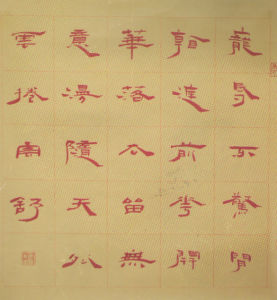 寵辱不驚閒
看庭前花開
華落去留無
意漫隨天外
雲捲雲舒